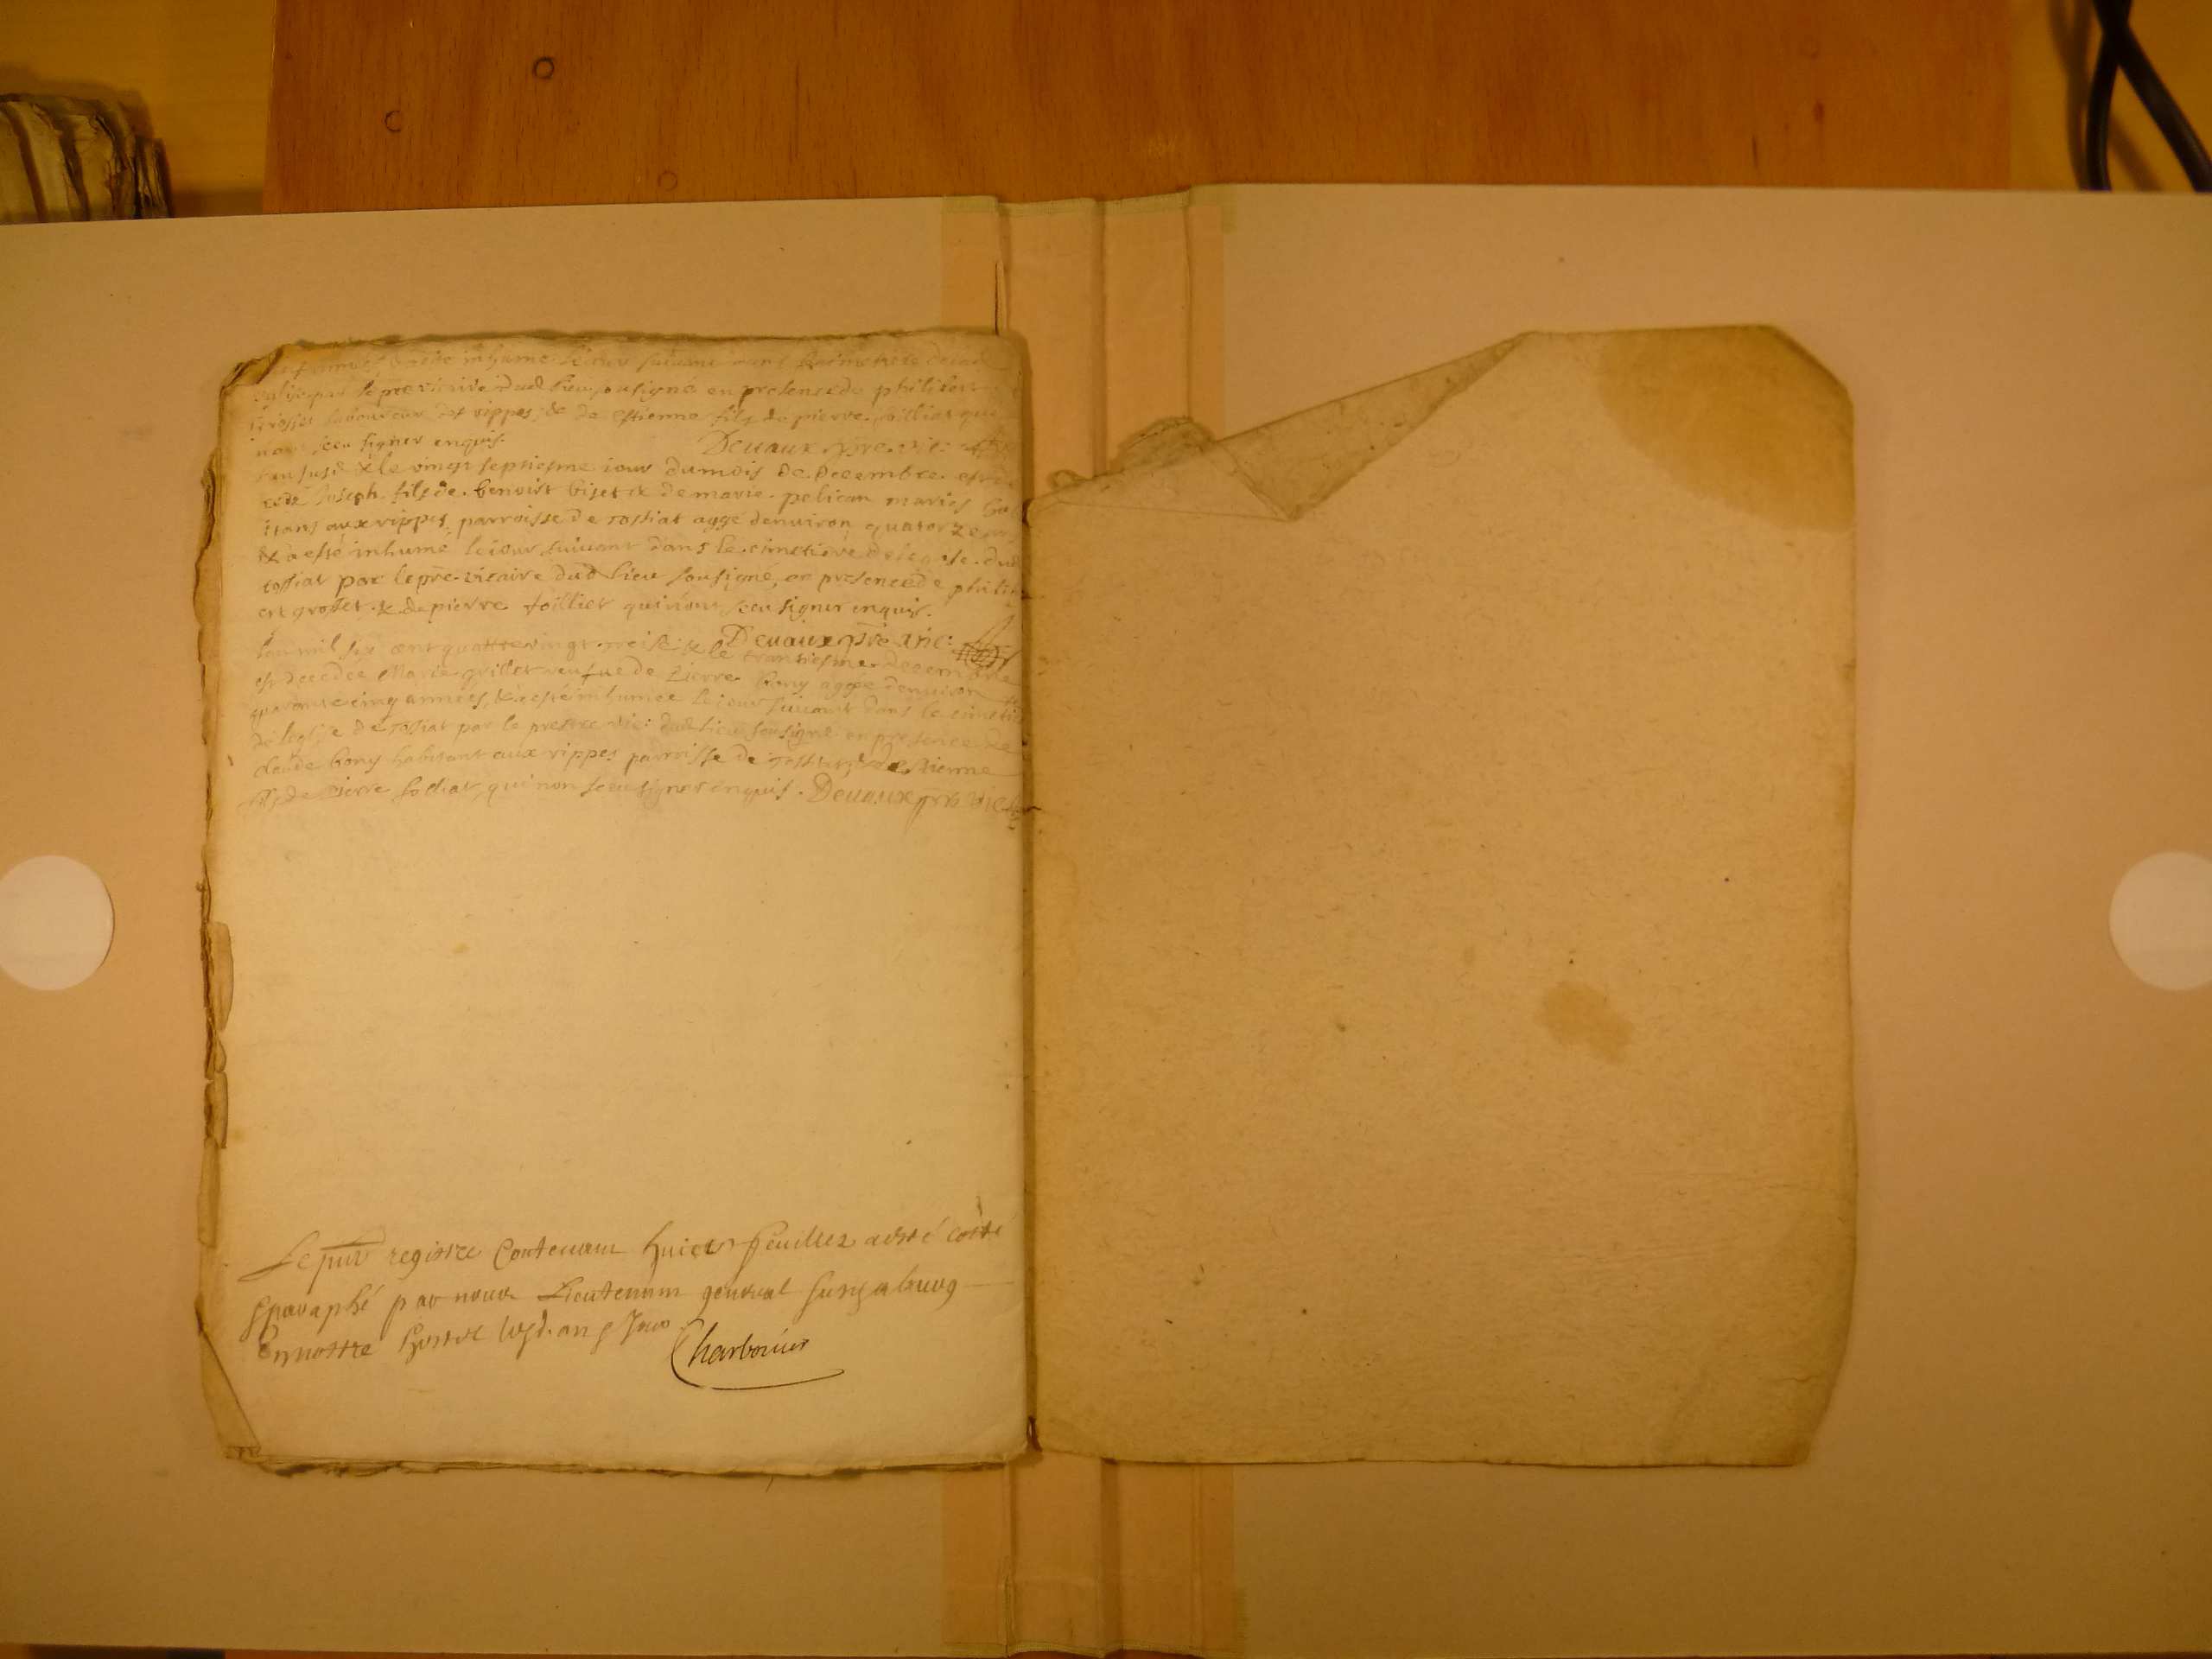 années, & a esté inhumé le iour suiuant dans le cimetiere de lad
eglise par le pre vicaire dud lieu sousigné en presence de philibert
grosset laboureur des rippes, & de estienne fils de pierre follliat qui
n'ont sceu signer enquis. Deuaux pre vic:
l'an susd & le vingt septiesme iour du mois de decembre est de
cedé Joseph fils de benoist biset & de marie pelican mariés ha
itans aux rippes parroisse de tossiat aggé denuiron quatorze
& a esté inhumé le iour suiuant dans le cimetiere de leglise dud
tossiat par le pre vicaire dud lieu sousigné, en presence de philib
ert grosset & de pierre follliet qui n'ont sceu signer enquis.
Deuaux pre vic:
l'an mil six cent quattre vingt treise & le trantiesme decembre
est decedée Marie grillet veufue de Pierre bony aggée denuiron
quarante cinq années, & a esté inhumée le iour suiuant dans le cimetie
de leglise de tossiat par le prestre vic: dud lieu sousigné en presence de
claude bony habitant aux rippes parroisse de tossiat & de estienne
fils de Pierre folliat, qui n'ont sceu signer enquis. Deuaux pre vic
Le pnt registre Contenant huict feuillez a esté cotté
& paraphé par nous Lieutenant general
En nostre hostel lesd. an & Jour
Charbonier